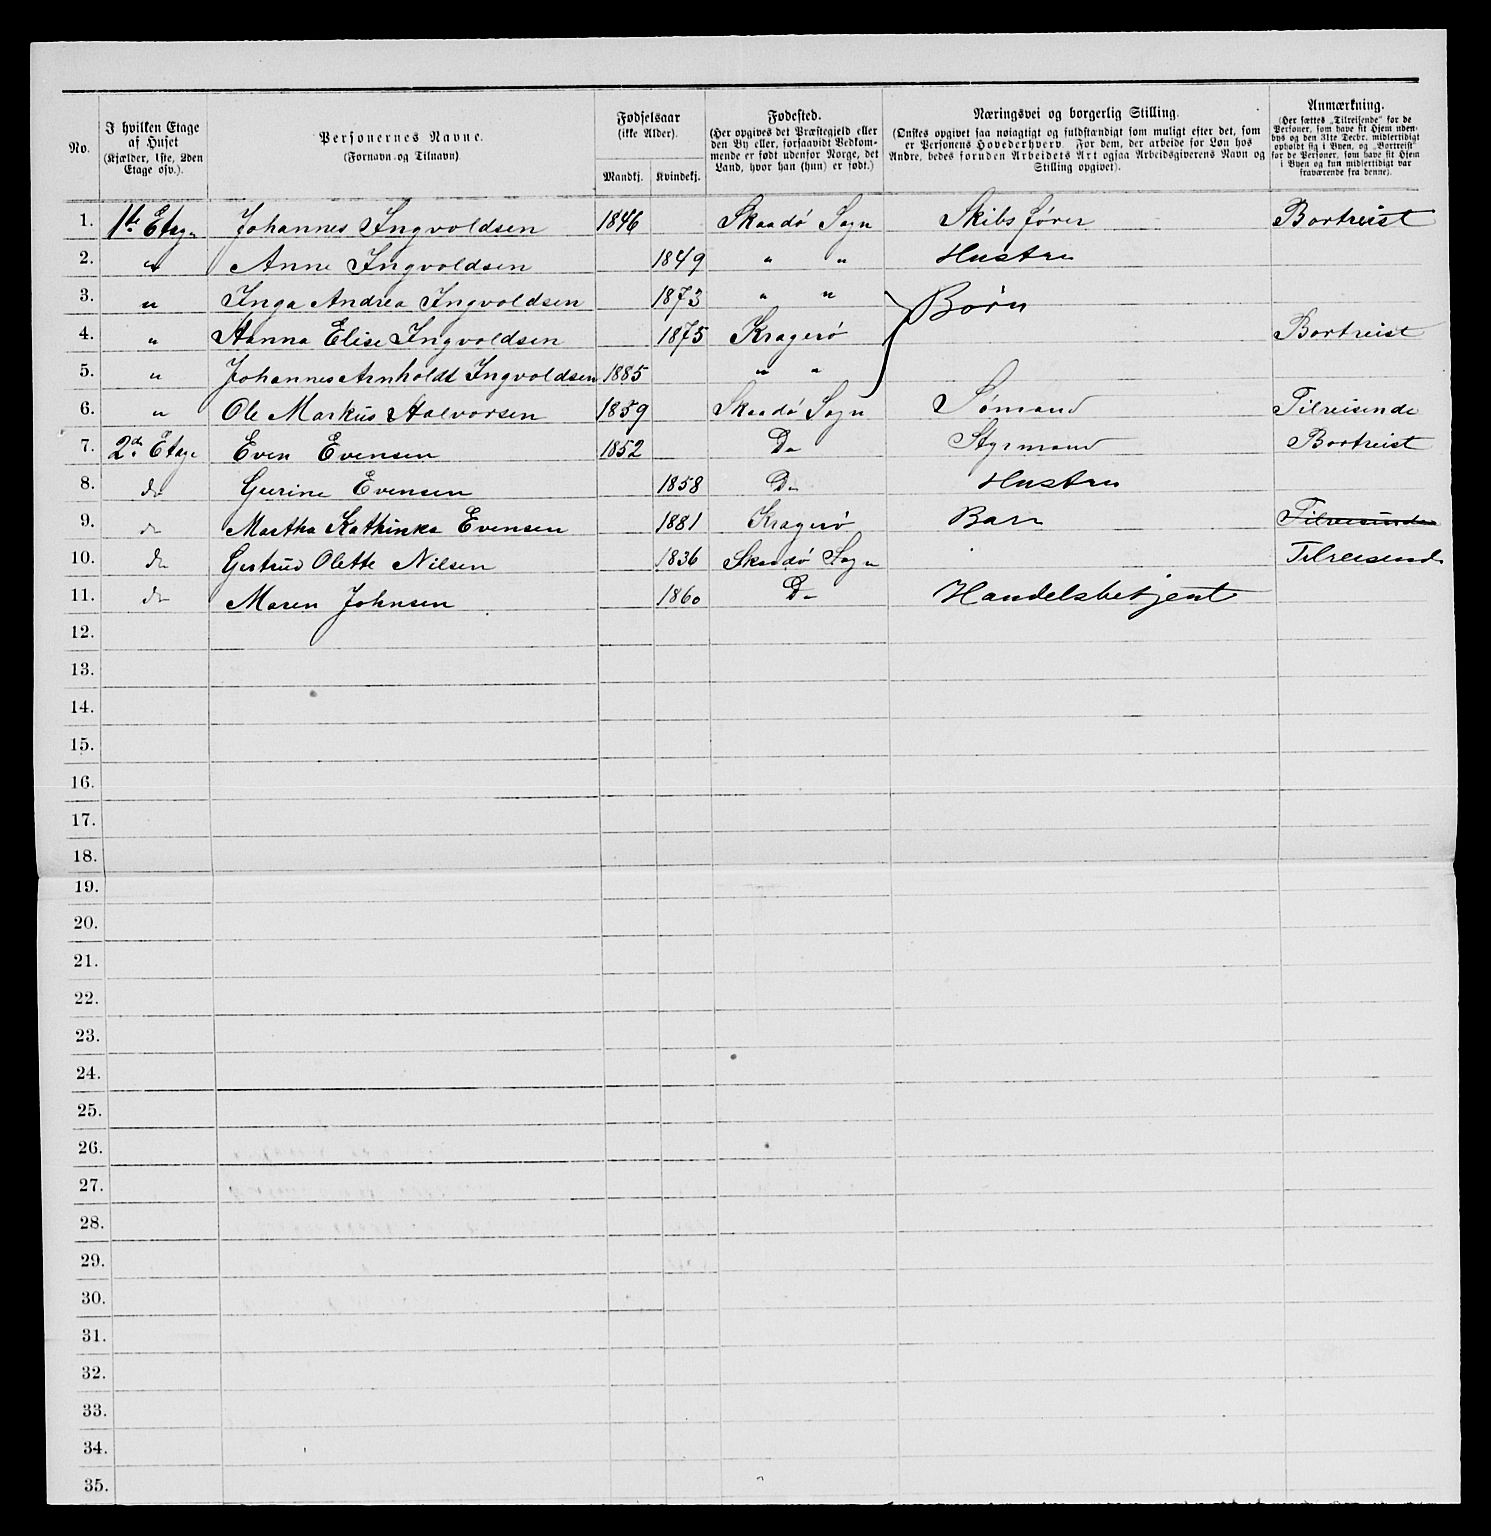 No. | I hvilken Etage af Huset (Kjælder, 1ste, 2den Etage osv.). | Personernes Navne. (Fornavn og Tilnavn) | Fødselsaar (ikke Alder). Mandkj. | Kvindekj. | Fødested. (Her opgives det Præstegjeld eller den By eller, forsaavidt Vedkommende er født udenfor Norge, det Land, hvor han (hun) er født.) | Næringsvei og borgerlig Stilling. (Ønskes opgivet saa nøiagtigt og fuldstændigt som muligt efter det, som er Personens Hovederhverv. For dem, der arbeide for Løn hos Andre, bedes foruden Arbeidets Art ogsaa Arbeidsgiverens Navn og Stilling opgivet). | Anmærkning. (Her sættes „Tilreisende" for de Personer, som have sit Hjem udenbys og den 31te Decbr. midlertidigt opholdt sig i Byen, og „Bortreist" for de Personer, som have sit Hjem i Byen og kun midlertidigt var fraværende fra denne).
1. 1te Etage Johannes Ingvoldsen 1846 Skaadø Sogn Skibsfører Bortreist
2. " Anne Ingvoldsen 1849 " " Hustru
3. " Inga Andrea Ingvoldsen 1873 " " Børn
4. " Hanna Elise Ingvoldsen 1875 Kragerø Bortreist
5. " Johannes Arnholdt Ingvoldsen 1885 " "
6. " Ole Markus Halvorsen 1859 Skaadø Sogn Sømand Tilreisende
7. 2d. Etage Even Evensen 1852 Do Styrmand Bortreist
8. do Gurine Evensen 1858 Do Hustru
9. do Martha Kathinka Evensen 1881 Kragerø Barn Tilreisende
10. do Gertrud Olette Nilsen 1836 Skaadø Sogn Tilreisende
11. do Maren Johnsen 1860 Do Handelsbetjent
12.
13.
14.
15.
16.
17.
18.
19.
20.
21.
22.
23.
24.
25.
26.
27.
28.
29.
30.
31.
32.
33.
34.
35.